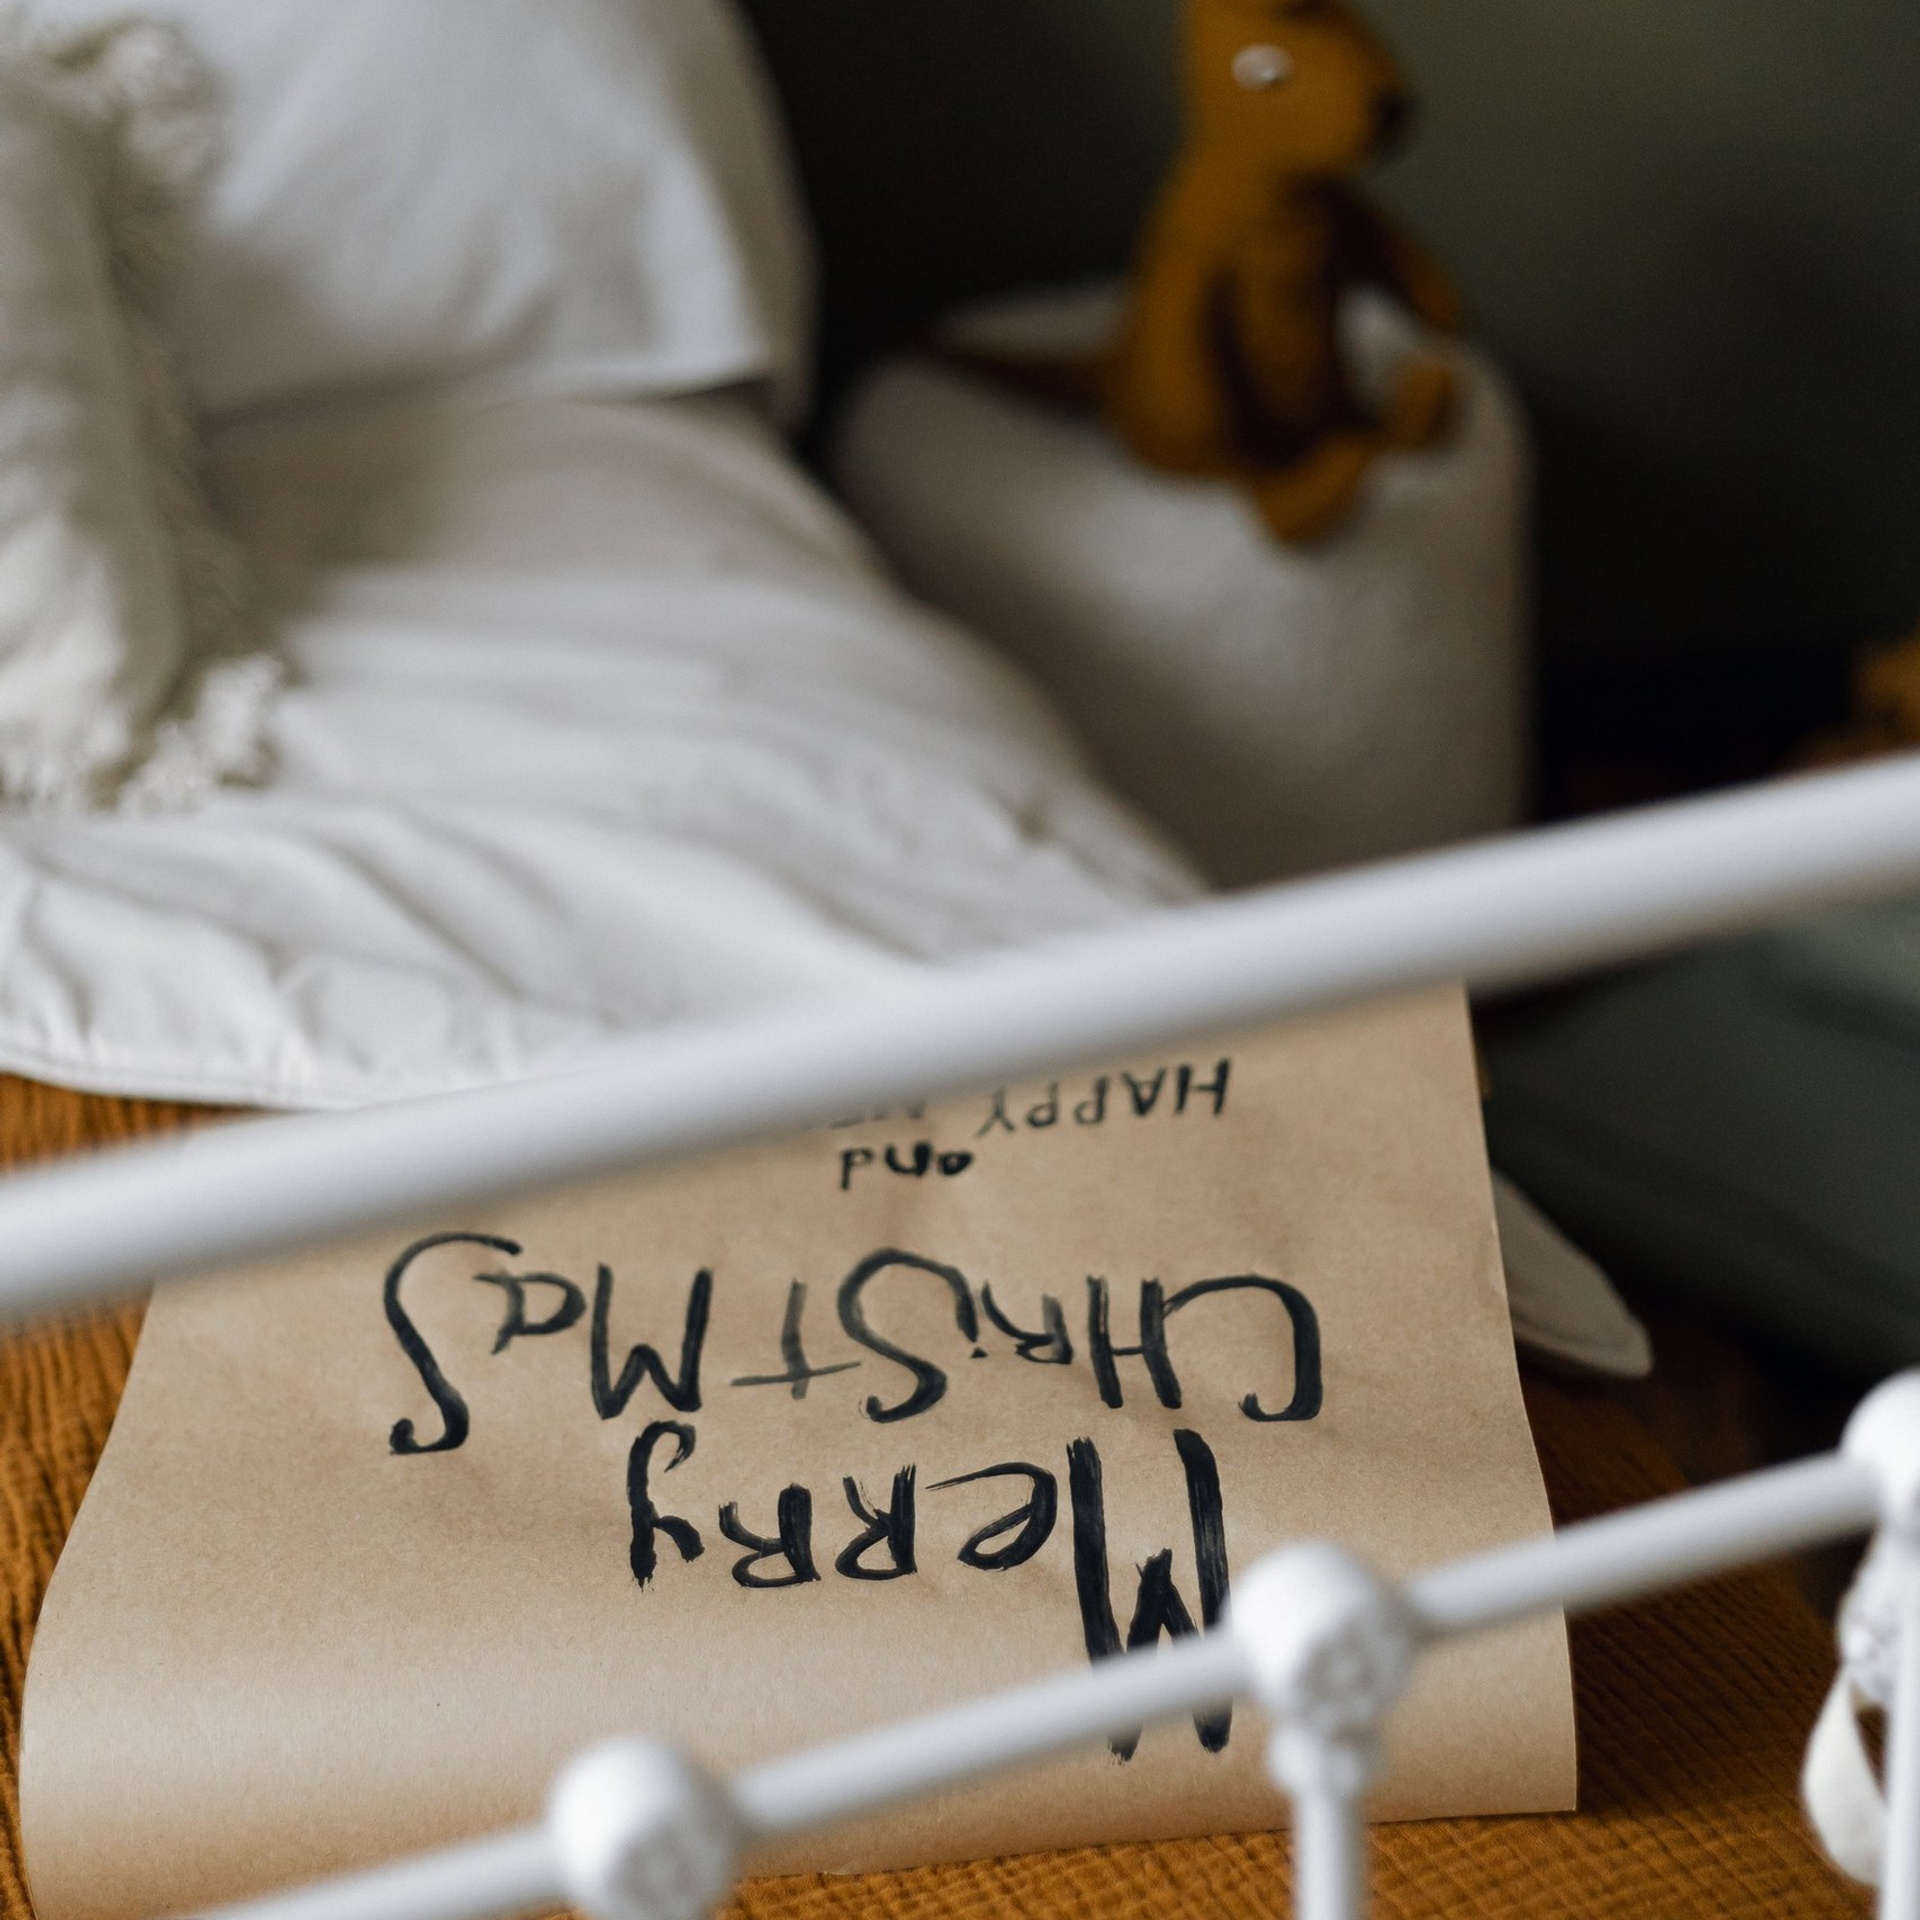 MeRRy
CHRiSTMaS
and
HAPPY